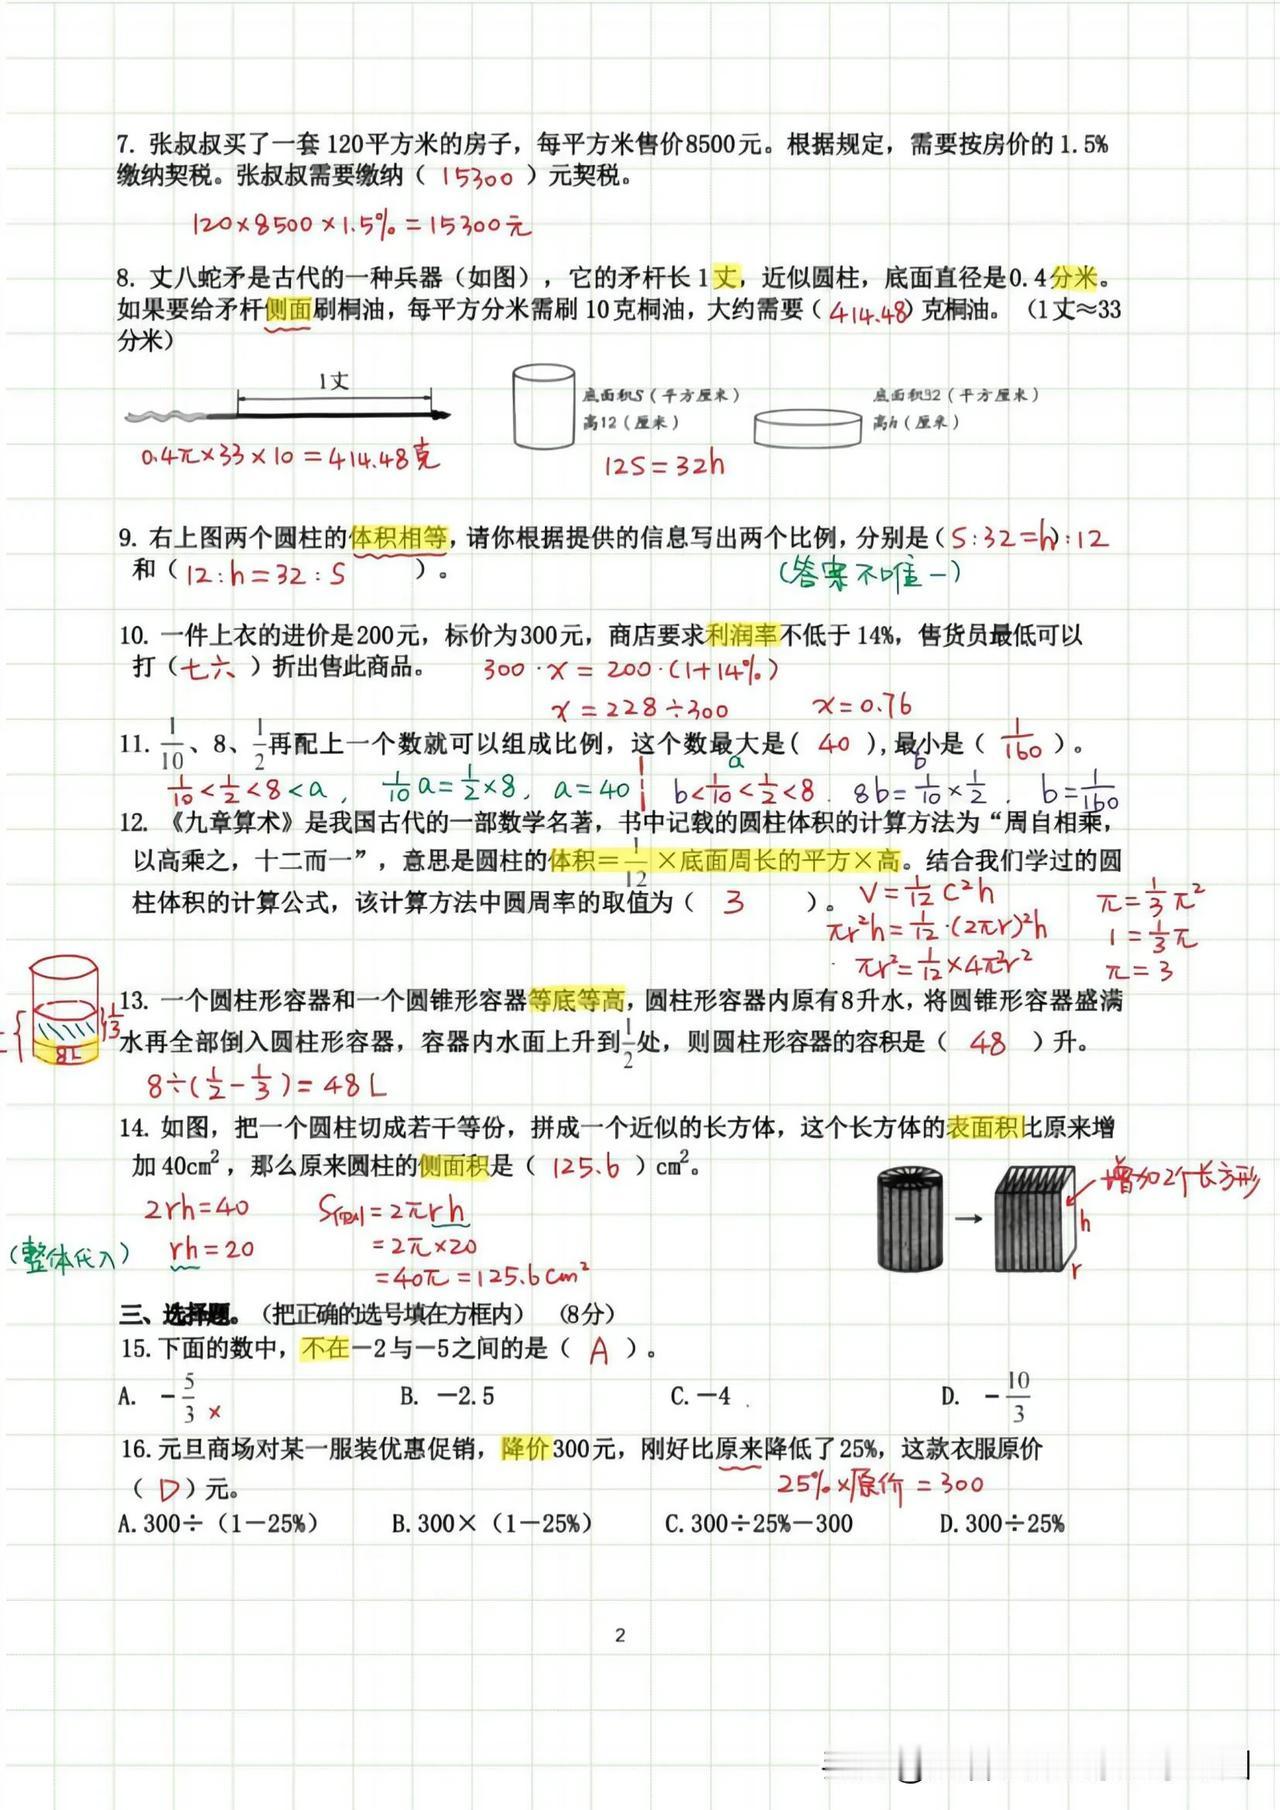 7. 张叔叔买了一套120平方米的房子，每平方米售价8500元。根据规定，需要按房价的1.5%
缴纳契税。张叔叔需要缴纳（ 15300 ）元契税。
120×8500×1.5%=15300元
8. 丈八蛇矛是古代的一种兵器（如图），它的矛杆长1丈，近似圆柱，底面直径是0.4分米。
如果要给矛杆侧面刷桐油，每平方分米需刷10克桐油，大约需要（ 414.48）克桐油。（1丈≈33
分米）
1丈
底面积S（平方厘米）
高12（厘米）
底面积32（平方厘米）
高h（厘米）
0.4π×33×10=414.48克
12S=32h
9. 右上图两个圆柱的体积相等，请你根据提供的信息写出两个比例，分别是（S:32=h）:12
和（12:h=32:S ）。
（答案不唯一）
10. 一件上衣的进价是200元，标价为300元，商店要求利润率不低于14%，售货员最低可以
打（七六 ）折出售此商品。
300·x=200·(1+14%)
x=228÷300 x=0.76
11. 1/10、8、1/2再配上一个数就可以组成比例，这个数最大是( 40 )，最小是（ 1/160 ）。
a b
1/10<1/2<8<a， 1/10a=1/2×8， a=40 b<1/10<1/2<8． 8b=1/10×1/2． b=1/160
12. 《九章算术》是我国古代的一部数学名著，书中记载的圆柱体积的计算方法为“周自相乘，
以高乘之，十二而一”，意思是圆柱的体积=1/12×底面周长的平方×高。结合我们学过的圆
柱体积的计算公式，该计算方法中圆周率的取值为（ 3 ）。
V=1/12C²h
πr²h=1/12·(2πr)²h
πr²=1/12×4π²r²
π=1/3π²
1=1/3π
π=3
1/3
8L
13. 一个圆柱形容器和一个圆锥形容器等底等高，圆柱形容器内原有8升水，将圆锥形容器盛满
水再全部倒入圆柱形容器，容器内水面上升到1/2处，则圆柱形容器的容积是（ 48 ）升。
8÷(1/2-1/3)=48L
14. 如图，把一个圆柱切成若干等份，拼成一个近似的长方体，这个长方体的表面积比原来增
加40cm²，那么原来圆柱的侧面积是（ 125.6 ）cm²。
增加2个长方形
h
r
2rh=40
rh=20
（整体代入）
S侧=2πrh
=2π×20
=40π=125.6cm²
三、选择题。（把正确的选号填在方框内） （8分）
15. 下面的数中，不在-2与-5之间的是（ A ）。
A. -5/3 × B. -2.5 C. -4 D. -10/3
16. 元旦商场对某一服装优惠促销，降价300元，刚好比原来降低了25%，这款衣服原价
（ D ）元。
25%×原价=300
A. 300÷（1-25%） B. 300×（1-25%） C. 300÷25%-300 D. 300÷25%
2